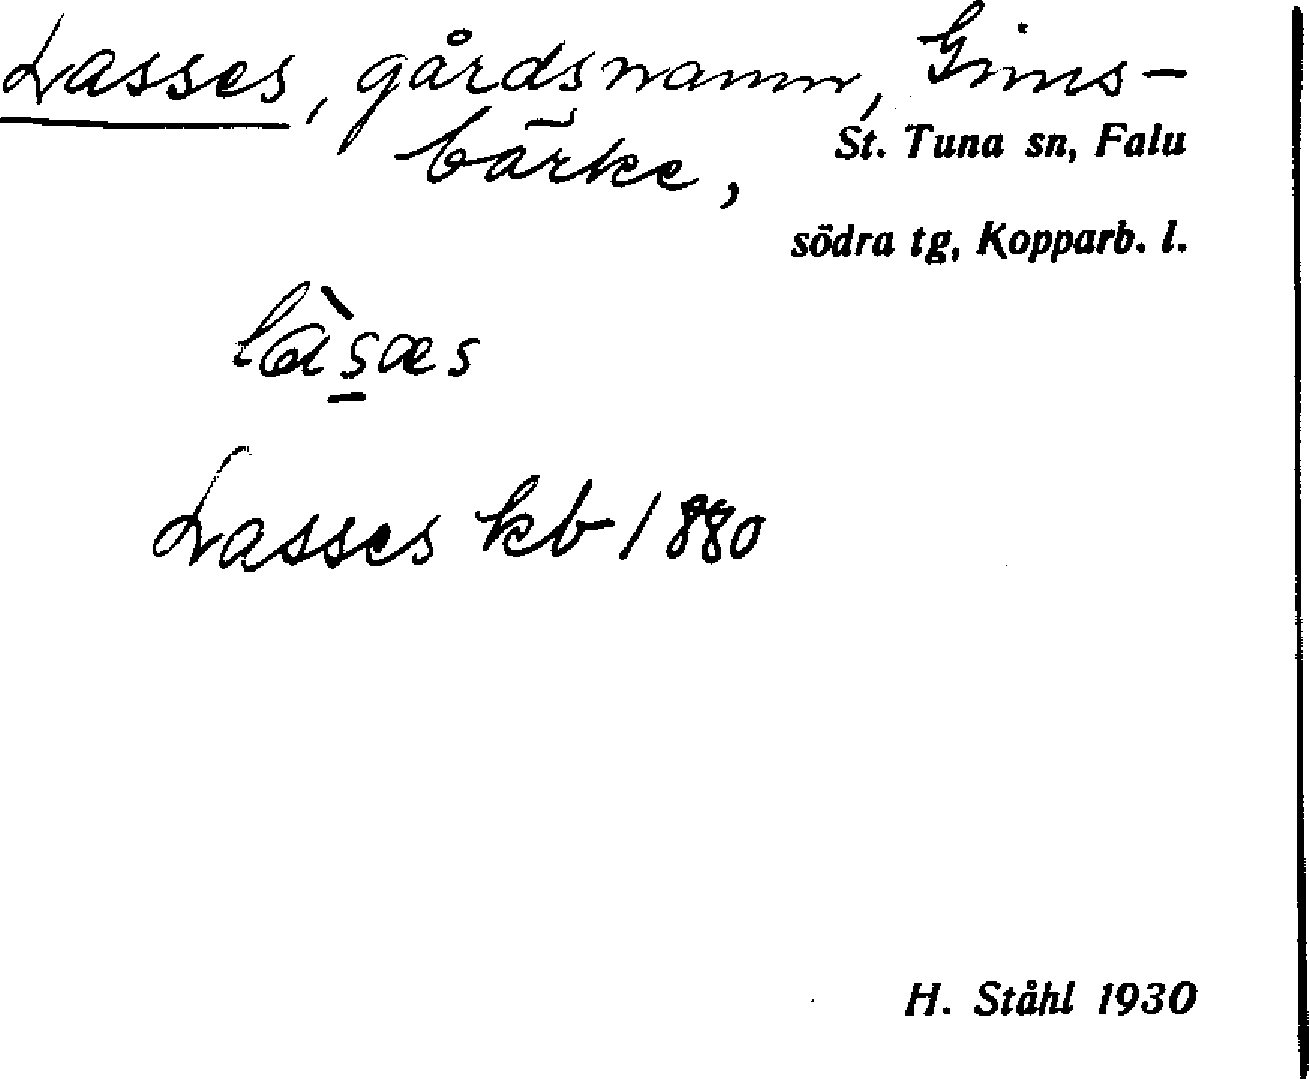 Lasses, gårdsnamn, Gims-
bärke, St. Tuna sn, Falu
södra tg, Kopparb. l.
làs̱æs
Lasses kb 1880
H. Ståhl 1930